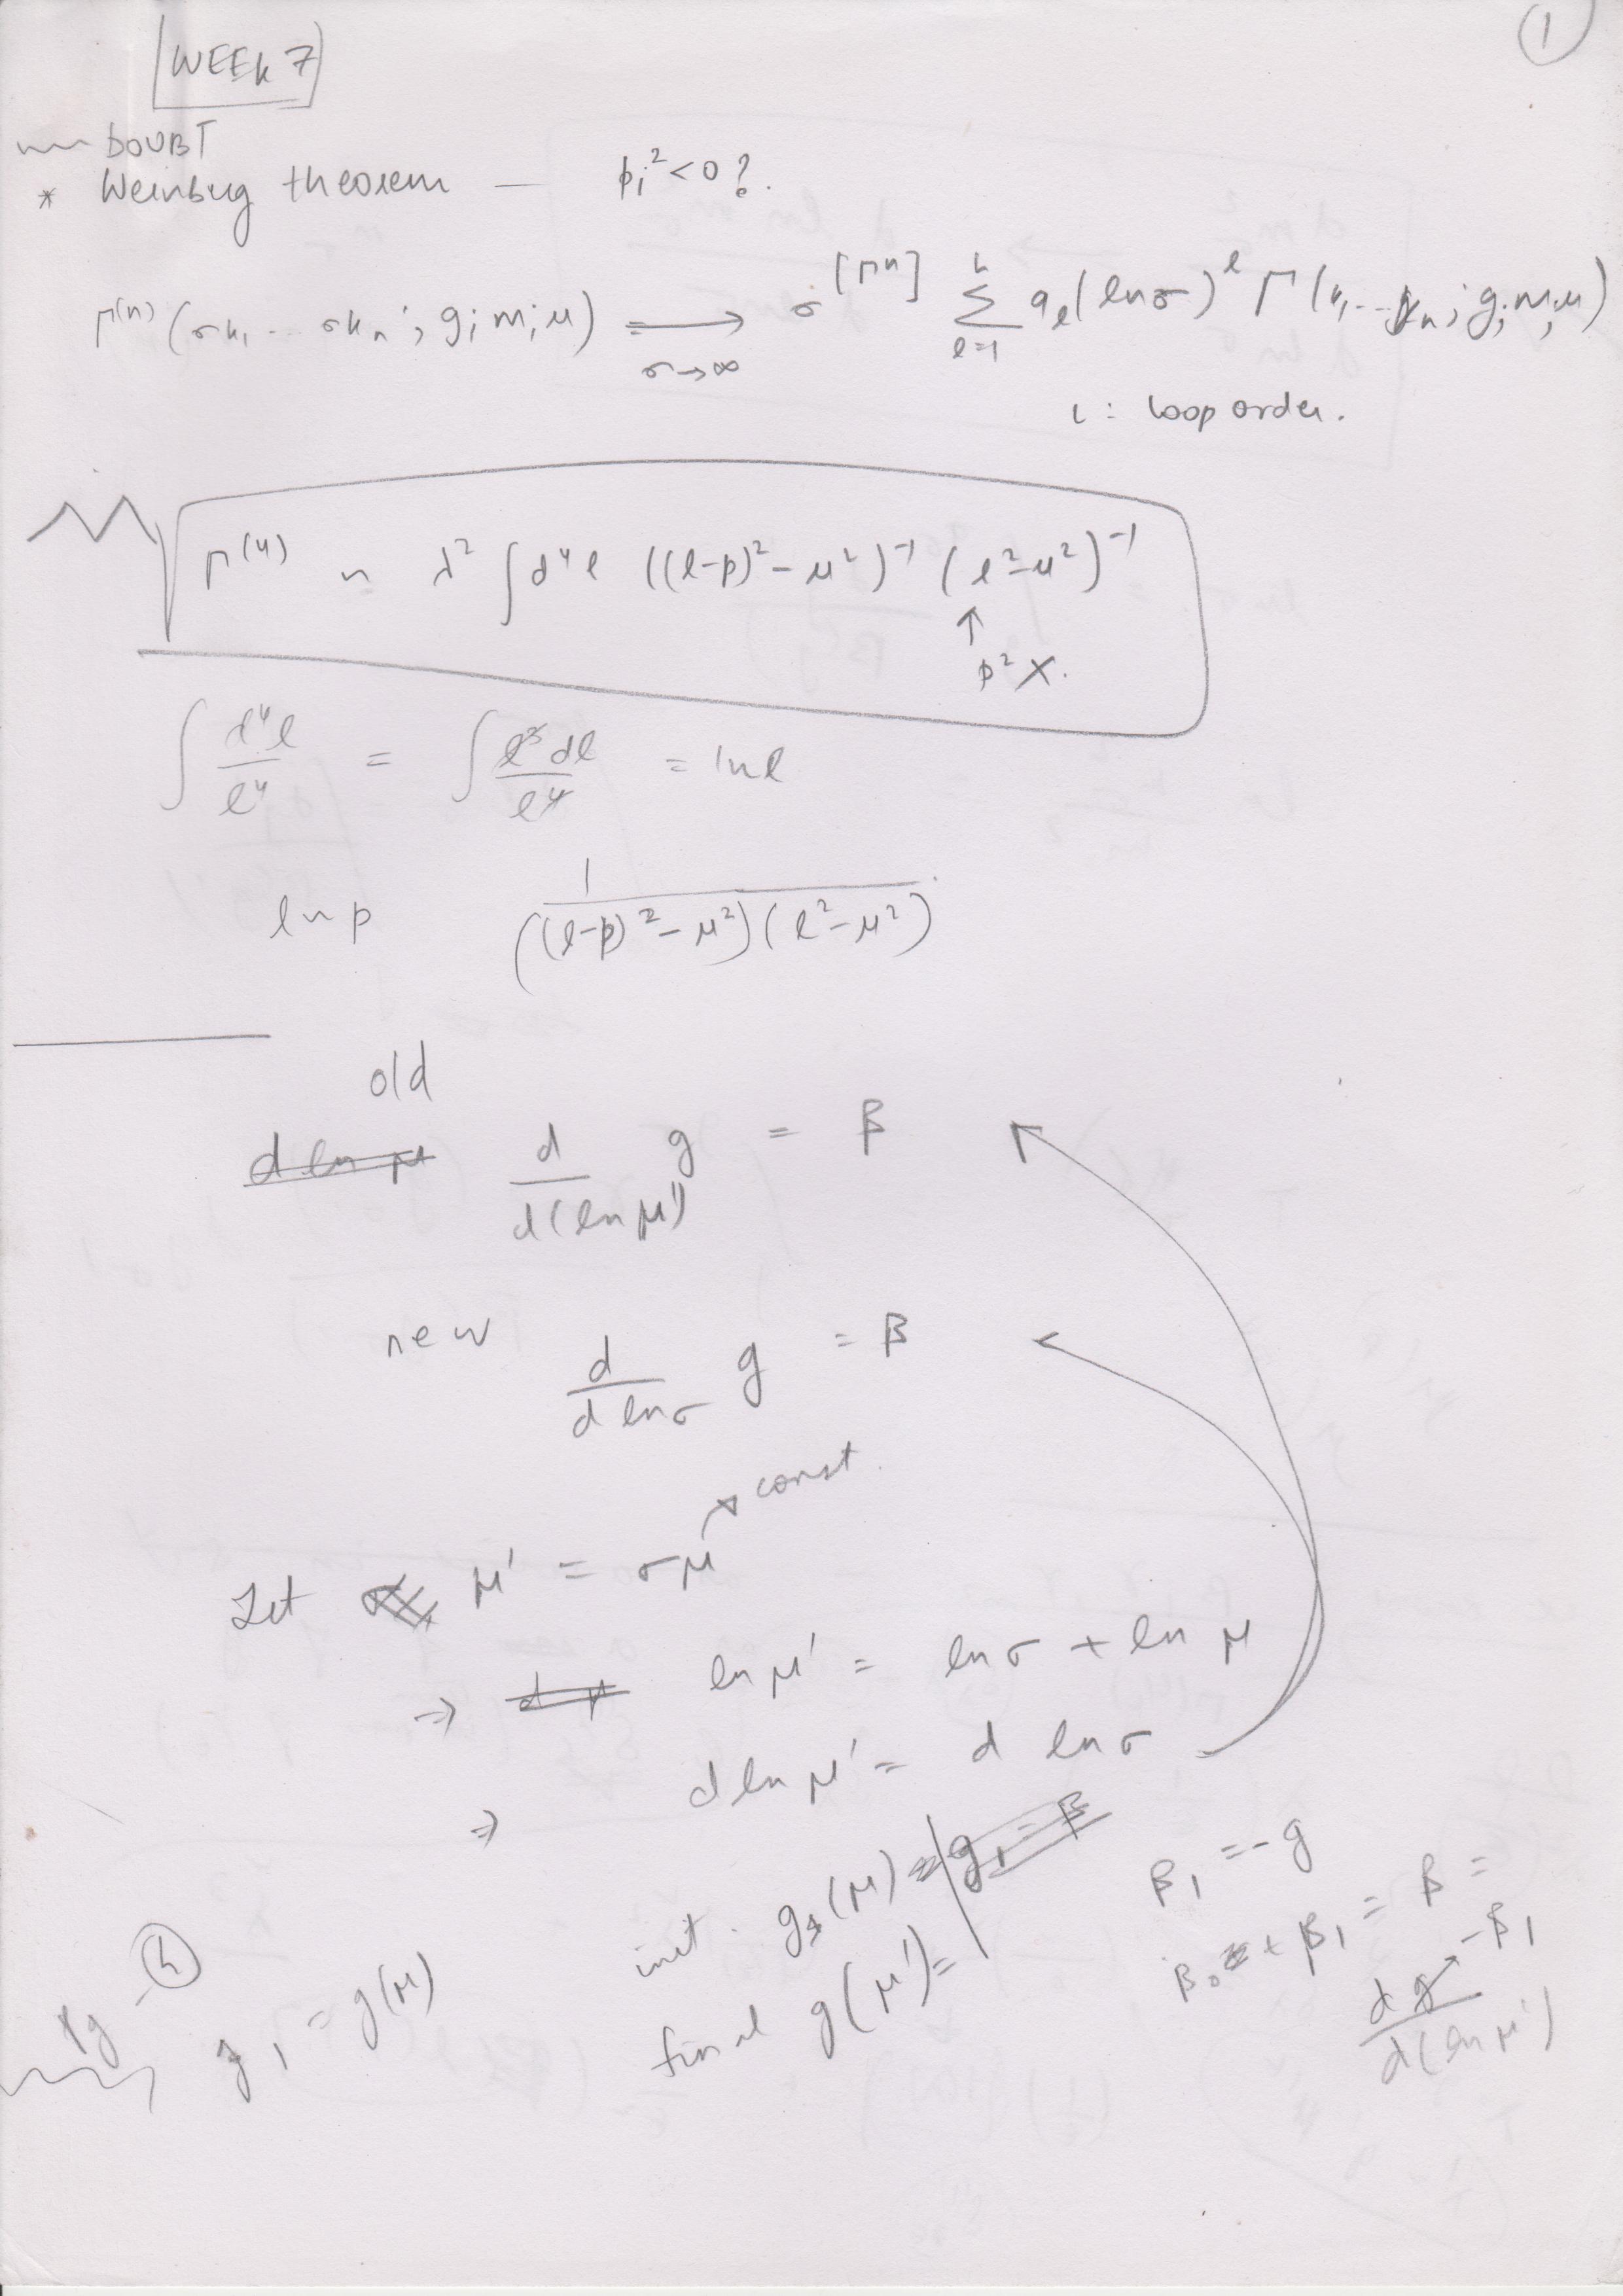 WEEK 7
1
DOUBT
* Weinbug theorem — p_i² < 0 ?.
Γ^(n) (σk₁ ... σk_n ; g, m, μ) ⟶_{σ→∞} σ^[Γⁿ] Σ_{l=1}^{L} a_l (ln σ)^l Γ(k₁ ... k_n ; g, m, μ)
L : loop order.
Γ^(4) ~ λ² ∫ d⁴l ((l-p)² - μ²)⁻¹ (l² - μ²)⁻¹
↑
p² X.
∫ d⁴l / l⁴ = ∫ l³ dl / l⁴ = ln l
ln p 1 / ((l-p)² - μ²)(l² - μ²)
old
d ln μ d/d(ln μ') g = β
new d/d ln σ g = β
const.
Let μ' = σμ
⇒ ln μ' = ln σ + ln μ
⇒ d ln μ' = d ln σ
init. g₁(μ) = g₁ = β
final g(μ') =
β₁ = -g
β₀ + β₁ = β =
dg/d(ln μ') - β₁
g₁ = g(μ)